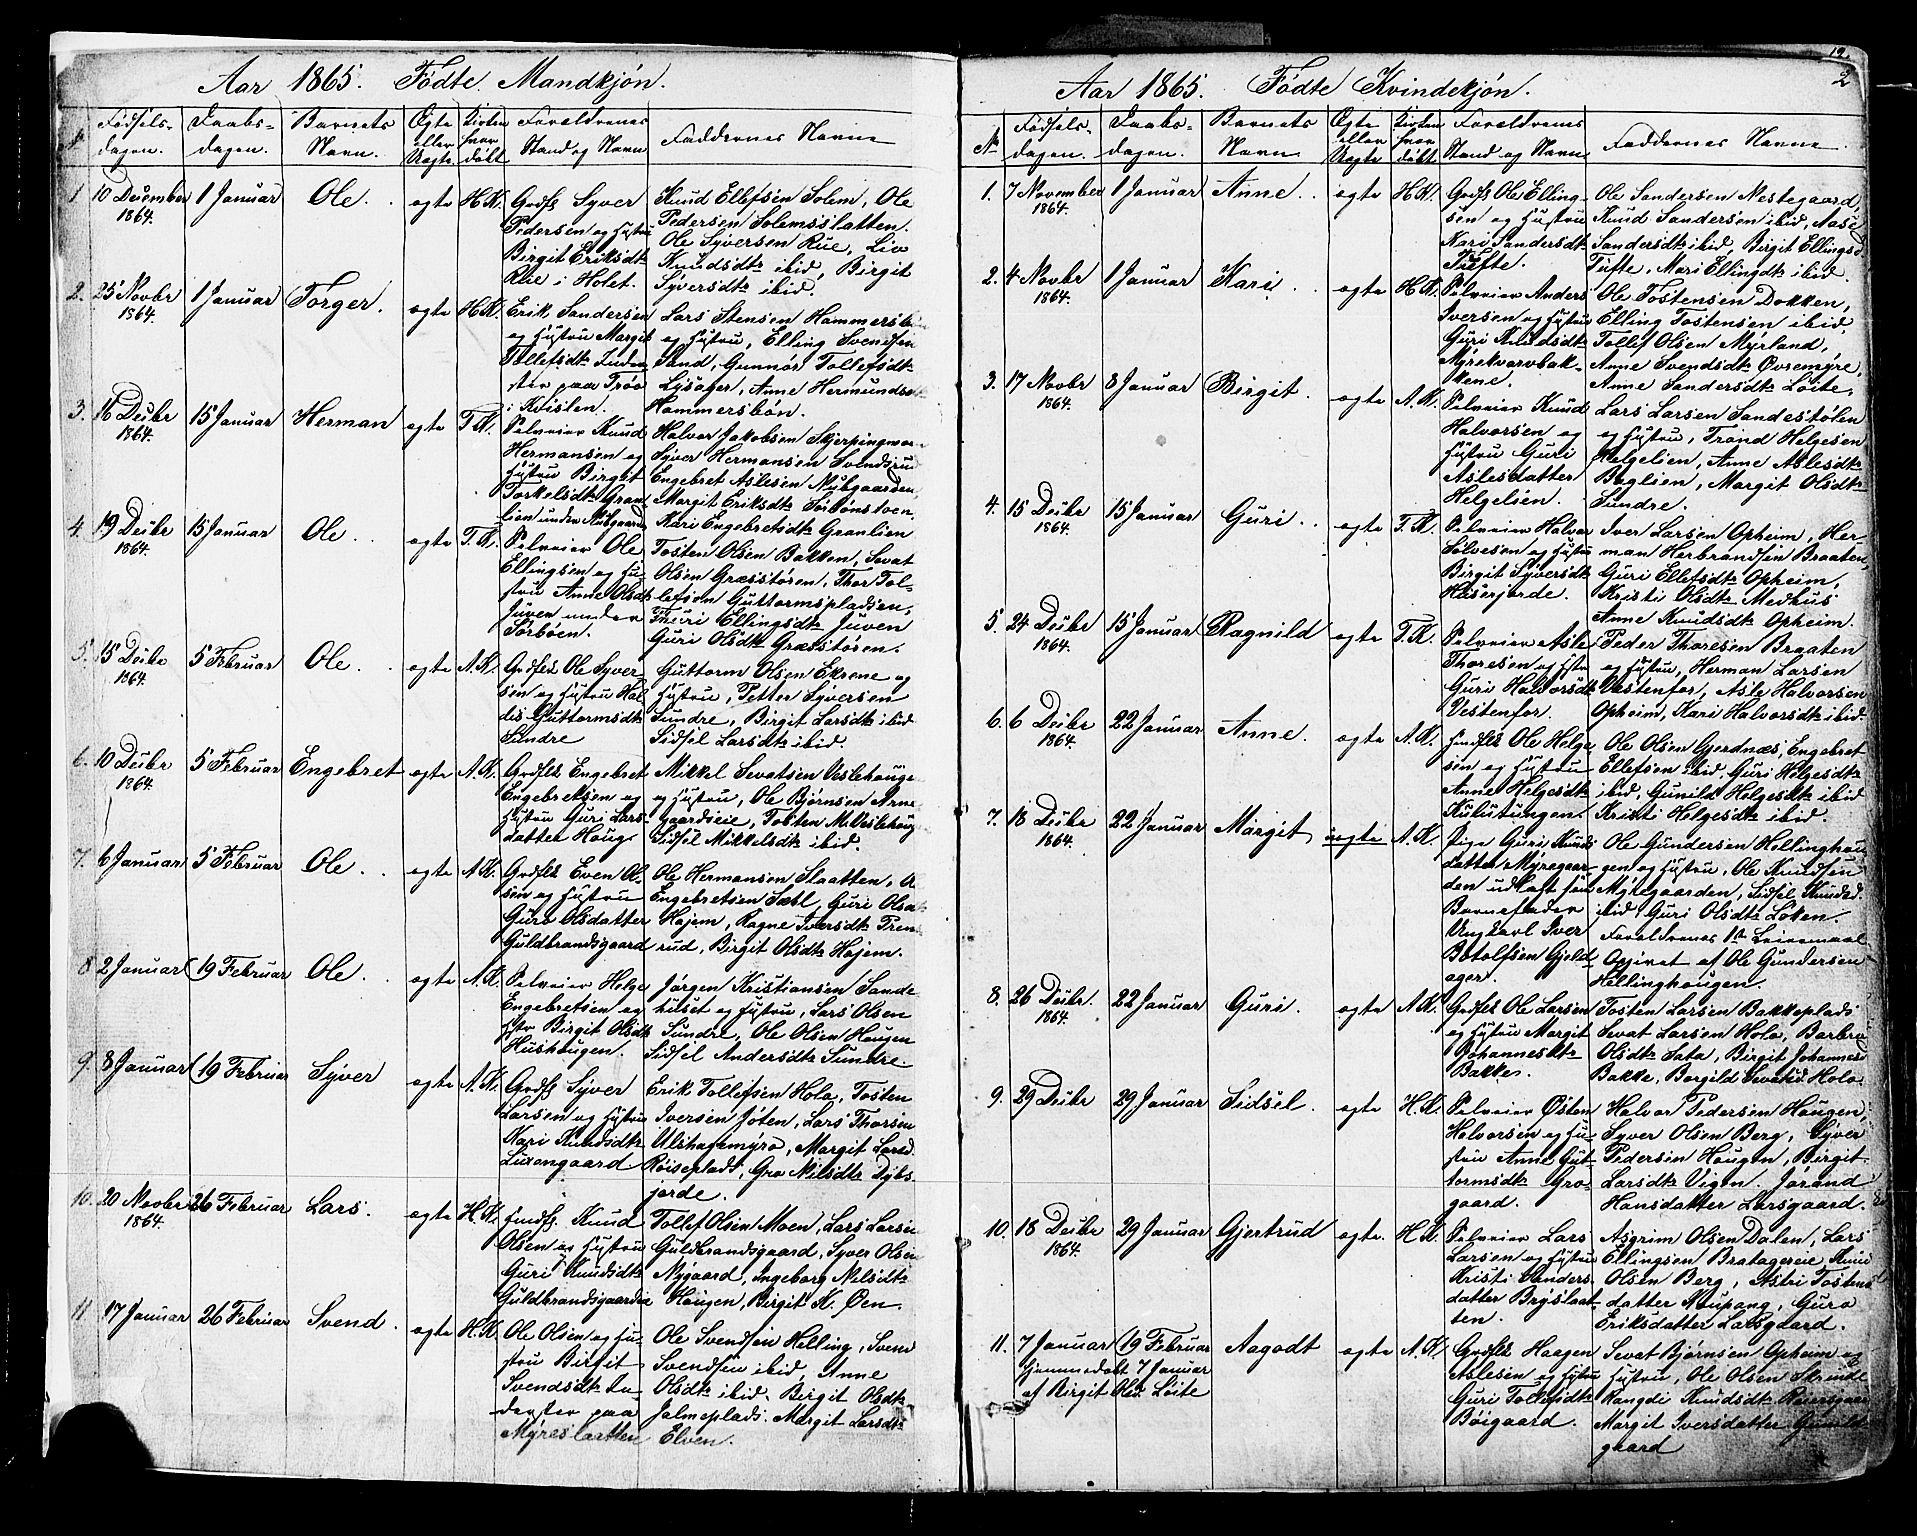 Aar 1865. Fødte Mandkjøn.
Fødsels-dagen. Daabs-dagen. Barnets Navn. Ægte eller Uægte Kirken hvor døbt Forældrenes Stand og Navn Faddernes Navne
1 10 December 1864. 1 Januar Ole. ægte H.K. Grdfs Syver
Pedersen og hustru
Birgit Eriksdtr
Rue i Holet.
Knud Ellefsen Solem, Ole
Pedersen Solemsslatten.
Ole Syversen Rue, Liv
Knudsdtr ibid, Birgit
Syversdtr ibid.
2. 25 Novbr 1864. 1 Januar Torger. ægte H.K. Erik Sandersen
og hustru Margit
Tollefsdtr Inder-
ster paa Trøo
i Kvisten.
Lars Stensen Hammersbøn
og hustru, Elling Svendsen
Sand, Gunnør Tollefsdtr
Lysager, Anne Hermundsdtr
Hammersbøn.
3. 16 Decbr 1864. 15 Januar Herman ægte T.K. Pelveier Knud
Hermansen og
hustru Birgit
Torkelsdtr Gran-
lien under Nubgaarden
Halvor Jakobsen Skjerpingmoen
Syver Hermansen Svendsrud
Engebret Aslesen Nubgaarden
Margit Eriksdtr Sørbønstoen.
Kari Engebretsdtr Granlien
4. 19 Decbr 1864. 15 Januar Ole. ægte T.K. Pelveier Ole
Ellingsen og hu-
stru Anne Olsdtr
Juven under
Sørbøen.
Tosten Olsen Bakken, Sevat
Olsen Græsstøren, Thor Tol-
lefsen Guttormspladsen,
Thuri Ellingsdtr Juven
Guri Olsdtr Græsstøren.
5. 15 Decbr 1864. 5 Februar Ole. ægte A.K. Grdfs Ole Syver
sen og hustru Hal
dis Guttormsdtr
Sundre
Guttorm Olsen Ekrene og
hustru, Petter Syversen
Sundre, Birgit Larsdtr ibid
Sidsel Larsdtr ibid.
6. 10 Decbr 1864. 5 Februar Engebret ægte A.K. Grdfs Engebret
Engebretsen og
hustru Guri Lars-
datter Houg
Mikkel Sevatsen Veslehouge
og hustru, Ole Bjørnsen Arne
gaardseie, Tosten M. Veslehoug
Sidsel Mikkelsdtr ibid.
7. 6 Januar 5 Februar Ole. ægte A.K. Grdfs Even Ol-
sen og hustru
Guro Olsdatter
Guldbrandsgaard
Ole Hermansen Slaatten,
Engebretsen Sæbl, Guri Olsdtr
Hajem, Ragne Iversdtr Trem
rud, Birgit Olsdtr Hajem.
8 2 Januar 19 Februar Ole. ægte A.K. Pelveier Helge
Engebretsen og
hstr Birgit Olsdtr
Hushougen.
Jørgen Kristiansen Sande
hilset og hustru, Lars Olsen
Sundre, Ole Olsen Hougen
Sidsel Andersdtr Sundre
9. 8 Januar 19 Februar Syver ægte A.K. Grdfs Syver
Larsen og hustru
Kari Knudsdtr
Luxengaard
Erik Tollefsen Holo, Tosten
Iversen Jøten, Lars Thorsen
Ulshagemyro, Margit Larsd
Røiseplads, Gro Nilsdtr Dybs
jorde.
10. 20 Novbr 1864. 26 Februar Lars. ægte H.K. Knud
Olsen og hustru
Guri Knudsdtr
Guldbrandsgaardeie
Tollef Olsen Moen, Lars Larsen
Guldbrandsgaard, Syver Olsen
Nygaard, Ingeborg Nilsdtr
Hougen, Birgit K. Øen.
11. 17 Januar 26 Februar Svend. ægte H.K. Ole Olsen og hu-
stru Birgit
Svendsdtr In-
derster paa
Myreslaatten
Ole Svendsen Helling, Svend
Svendsen ibid, Anne
Olsdtr ibid. Birgit Olsdtr
Jalmeplads. Margit Larsdtr
Elven.
12
2
Aar 1865. Fødte Kvindekjøn.
No Fødsels-dagen. Daabs-dagen. Barnets Navn Ægte eller Uægte Kirken hvor døbt Forældrenes Stand og Navn Faddernes Navne
1. 7 November 1864. 1 Januar Anne. ægte H.K. Grdfs Ole Elling-
sen og hustru
Kari Sandersdtr
Tufte.
Ole Sandersen Nestegaard,
Knud Sandersen ibid, Aase
Sandersdtr ibid, Birgit Ellingsd
Tufte, Mari Ellingdtr ibid.
2. 4 Novbr 1864. 1 Januar Kari. ægte H.K. Pelveier Anders
Iversen og hustru
Guri Knudsdtr
Myrekvarvbak-
kene.
Ole Tostensen Dokken,
Elling Tostensen ibid,
Tollef Olsen Myrland,
Anne Svendsdtr Øvremyre,
Anne Sandersdtr Løite,
3. 17 Novbr 1864. 8 Januar Birgit. ægte A.K. Pelveier Knud
Halvorsen og
hustru Guri
Aslesdatter
Helgelien.
Lars Larsen Sandestølen
og hustru, Trond Helgesen
Helgelien, Anne Aslesdtr
Baglien, Margit Olsdtr
Sundre.
4. 15 Decbr 1864. 15 Januar Guri. ægte T.K. Pelveier Halvor
Sølvesen og hustru
Birgit Syversdtr
Haserjorde.
Iver Larsen Opheim, Her-
man Herbrandsen Braaten
Guri Ellefsdtr Opheim,
Kristi Olsdtr Medhus
Anne Knudsdtr Opheim.
5. 24 Decbr 1864. 15 Januar Ragnild ægte T.K. Pelveier Asle
Thoresen og hstr
Guri Halvorsdtr
Vestenfor.
Peder Thoresen Braaten
og hustru, Herman Larsen
Vestenfor, Asle Halvorsen
Opheim, Kari Halvorsdtr ibid.
6. 6 Decbr 1864. 22 Januar Anne. ægte A.K. Ole Helge
sen og hustru
Anne Helgesdtr
Kulutungen.
Ole Olsen Gjerdnæs, Engebret
Ellefsen ibid. Guri Helgesdtr
ibid, Gunild Helgesdtr ibid
Kristi Helgesdtr ibid.
7. 18 Decbr 1864. 22 Januar Margit uægte A.K. Pige Guri Knuds
datter Myregaar-
den udlagt som
Barnefader
Ungkarl Iver
Botolfsen Gjeld-
ager.
Ole Gundersen Hellinghou
gen og hustru, Ole Knudsen
Myregaarden, Sidsel Knudsd.
ibid, Guri Olsdtr Løken.
Forældrenes 1ste Leiermaal
Opgivet af Ole Gundersen
Hellinghougen.
8. 26 Decbr. 1864. 22 Januar Guri. ægte A.K. Grdfs Ole Larsen
og hustru Margit
Johannesdtr
Bakke.
Tosten Larsen Bakkeplads
Sevat Larsen Holo, Barbro
Olsdtr Sata, Birgit Johannesd
Bakke, Borgild Sevatsd. Holo.
9. 29 Decbr 29 Januar Sidsel. ægte H.K. Pelveier Østen
Halvorsen og hu-
stru Anne Gut-
tormsdtr Gro-
gaard.
Halvor Pedersen Hougen,
Syver Olsen Berg, Syver
Pedersen Hougen, Birgit
Larsdtr Vigen. Jørand
Hansdatter Larsgaard.
10. 18 Decbr 1864. 29 Januar Gjertrud ægte. H.K. Pelveier Lars
Larsen og hustru
Kristi Sanders
datter Bryslaat-
ten.
Asgrim Olsen Dalen, Lars
Ellingsen Bratagereie Knud
Olsen Berg, Astri Tostens
datter Koupang, Guro
Eriksdatter Larsgaard.
11. 7 Januar 19 Februar Aagodt ægte A.K. Grdfs Haagen
Hjemmedøbt 7 Januar
af Birgit Olsd. Løite
Aslesen og hustru
Guri Tollefsdtr
Bøigaard.
Sevat Bjørnsen Opheim og
hustru, Ole Olsen Skrinde
Rangdi Knudsdtr
Margit Iversdatter
gaard